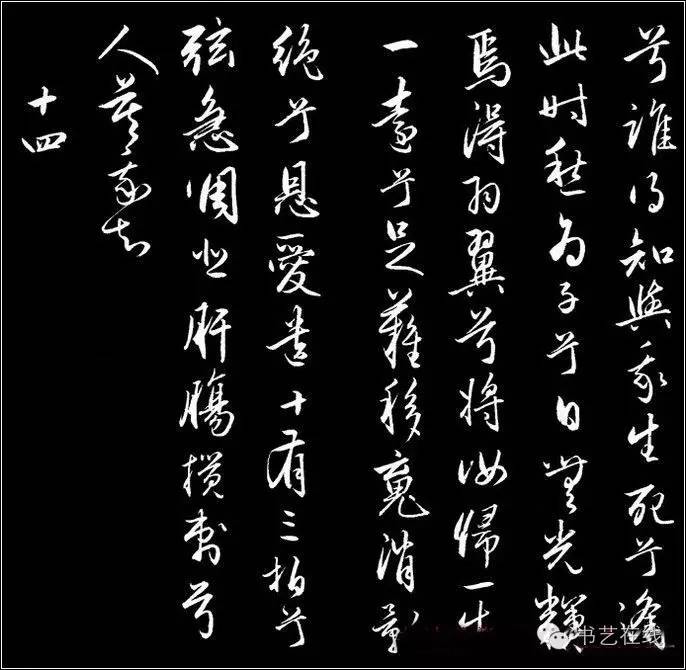 兮誰得知與我生死兮逢
此時愁為子兮日無光輝
焉得羽翼兮將汝歸一步
一遠兮足難移魂消影
絶兮恩愛遺十有三拍兮
弦急調悲肝腸攪刺兮
人莫我知
十四
书艺在线